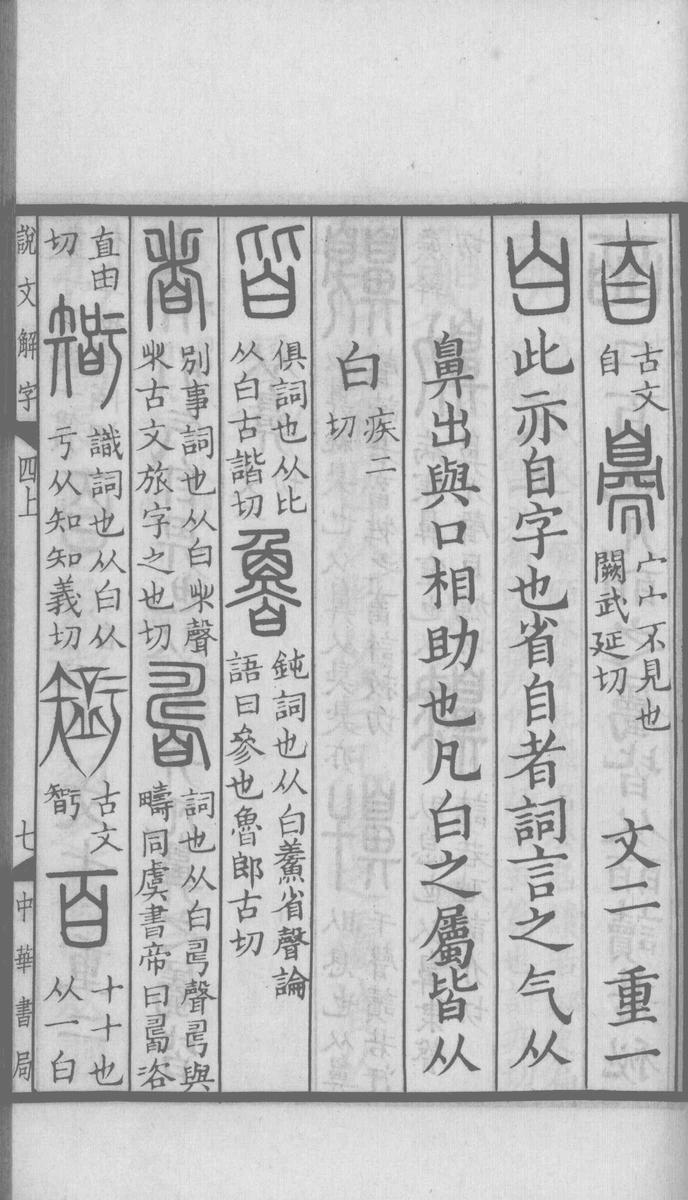 𦣹古文自臱宀宀不見也闕武延切 文二 重一
白此亦自字也省自者詞言之气从
鼻出與口相助也凡白之屬皆从
白疾二切
皆俱詞也从比从白古諧切魯鈍詞也从白鮺省聲論語曰參也魯郎古切
者別事詞也从白𣥐聲𣥐古文旅字之也切𠷎詞也从白𠃬聲𠃬與疇同虞書帝曰𠷎咨
直由切𥏼識詞也从白从亏从知知義切古文𥏼百十十也从一白
說文解字 四上 七 中華書局